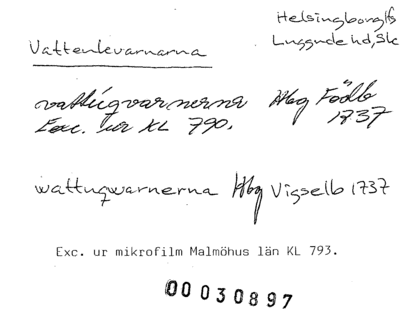 Helsingborg lfs
Luggude hd, Sk
Vattenkvarnarna
vattugvarnerna Hbg Födlb
1737
Exc. ur KL 790.
wattuqwarnerna Hbg Vigselb 1737
Exc. ur mikrofilm Malmöhus län KL 793.
00030897